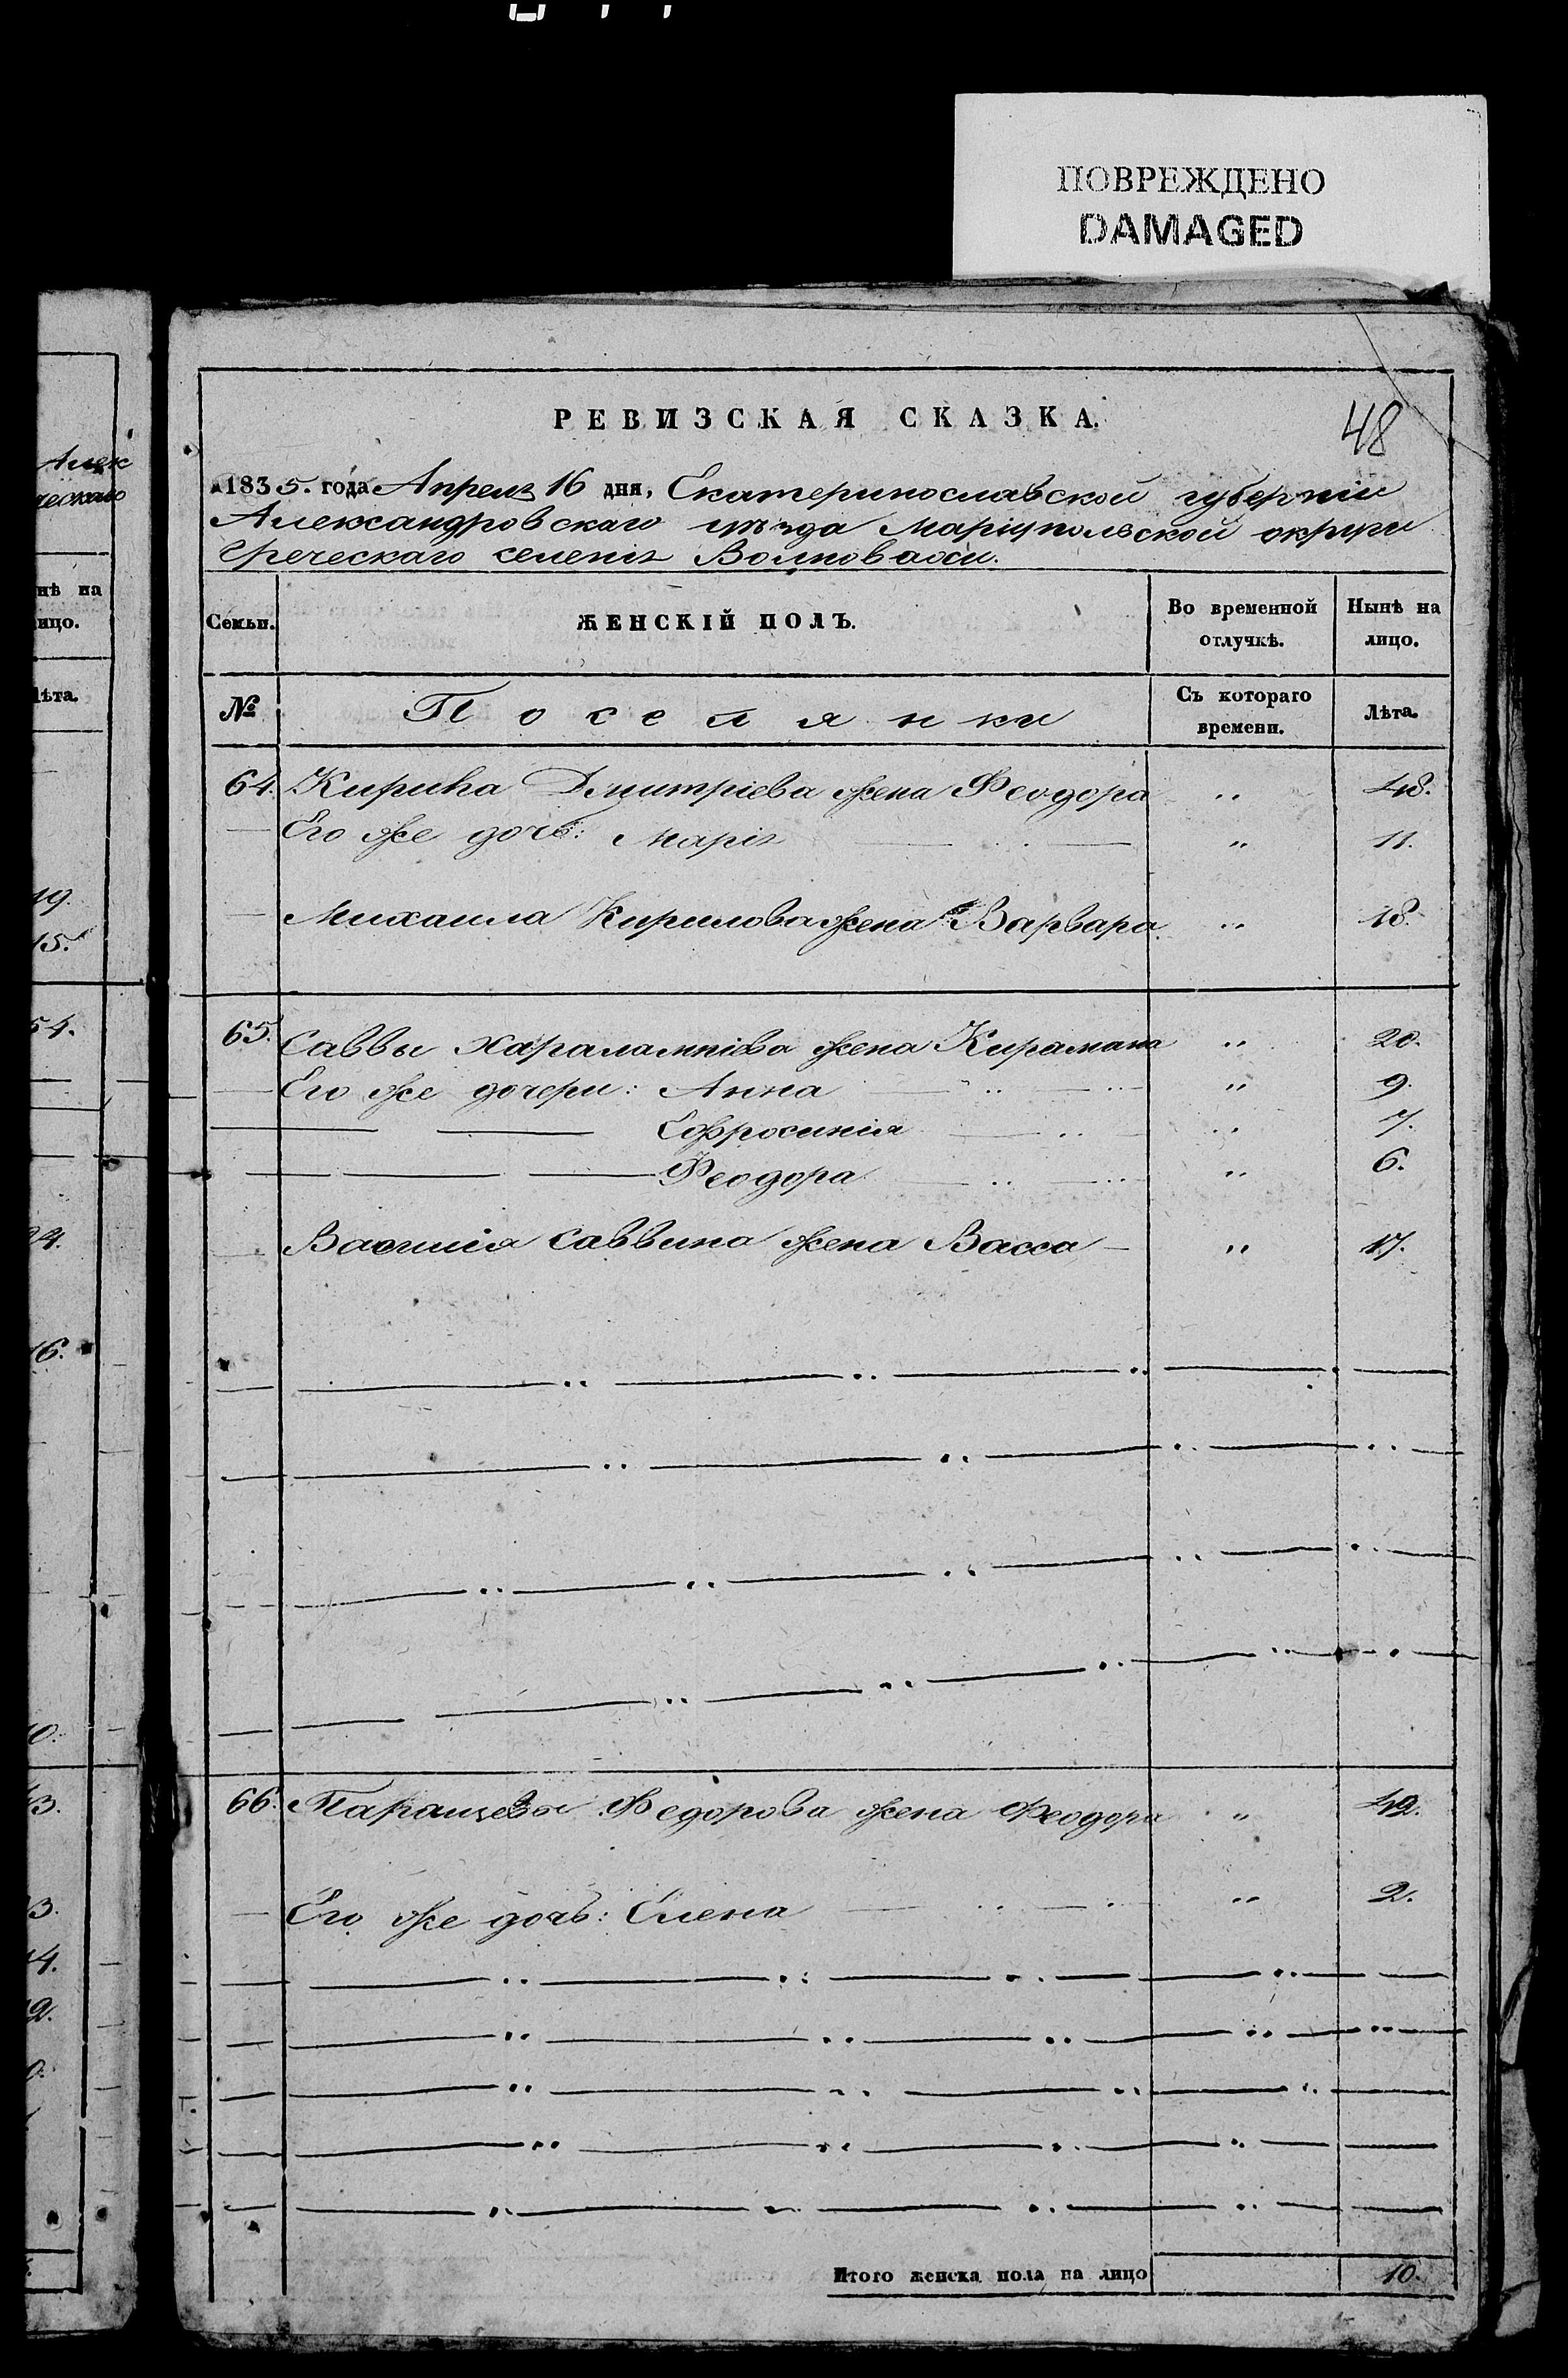 ПОВРЕЖДЕНО
DAMAGED
РЕВИЗСКАЯ СКАЗКА.
48
1835. года Апреля 16 дня, Екатеринославской губерніи
Александровскаго уѣзда Маріупольской округи
Греческаго селенія Волновахи.
Семьи.
ЖЕНСКІЙ ПОЛЪ.
Во временной отлучкѣ.
Нынѣ на лицо.
№
Поселянки
Съ котораго времени.
Лѣта.
64. Жена Феодора „ 48.
Его же дочь: Марія „ 11.
Михаила Кирилова жена Варвара „ 18.
65. Саввы Харалампіева жена „ 20.
Его же дочери: Анна „ 9.
Ефросинія „ 7.
Феодора „ 6.
Василія Саввина жена Васса „ 17.
66. Федорова жена Феодора „ 49.
Его же дочь: Елена „ 2.
Итого женска пола на лицо 10.
Алек
ческаго
нѣ на
ицо.
Лѣта.
19.
15.
54.
24.
16.